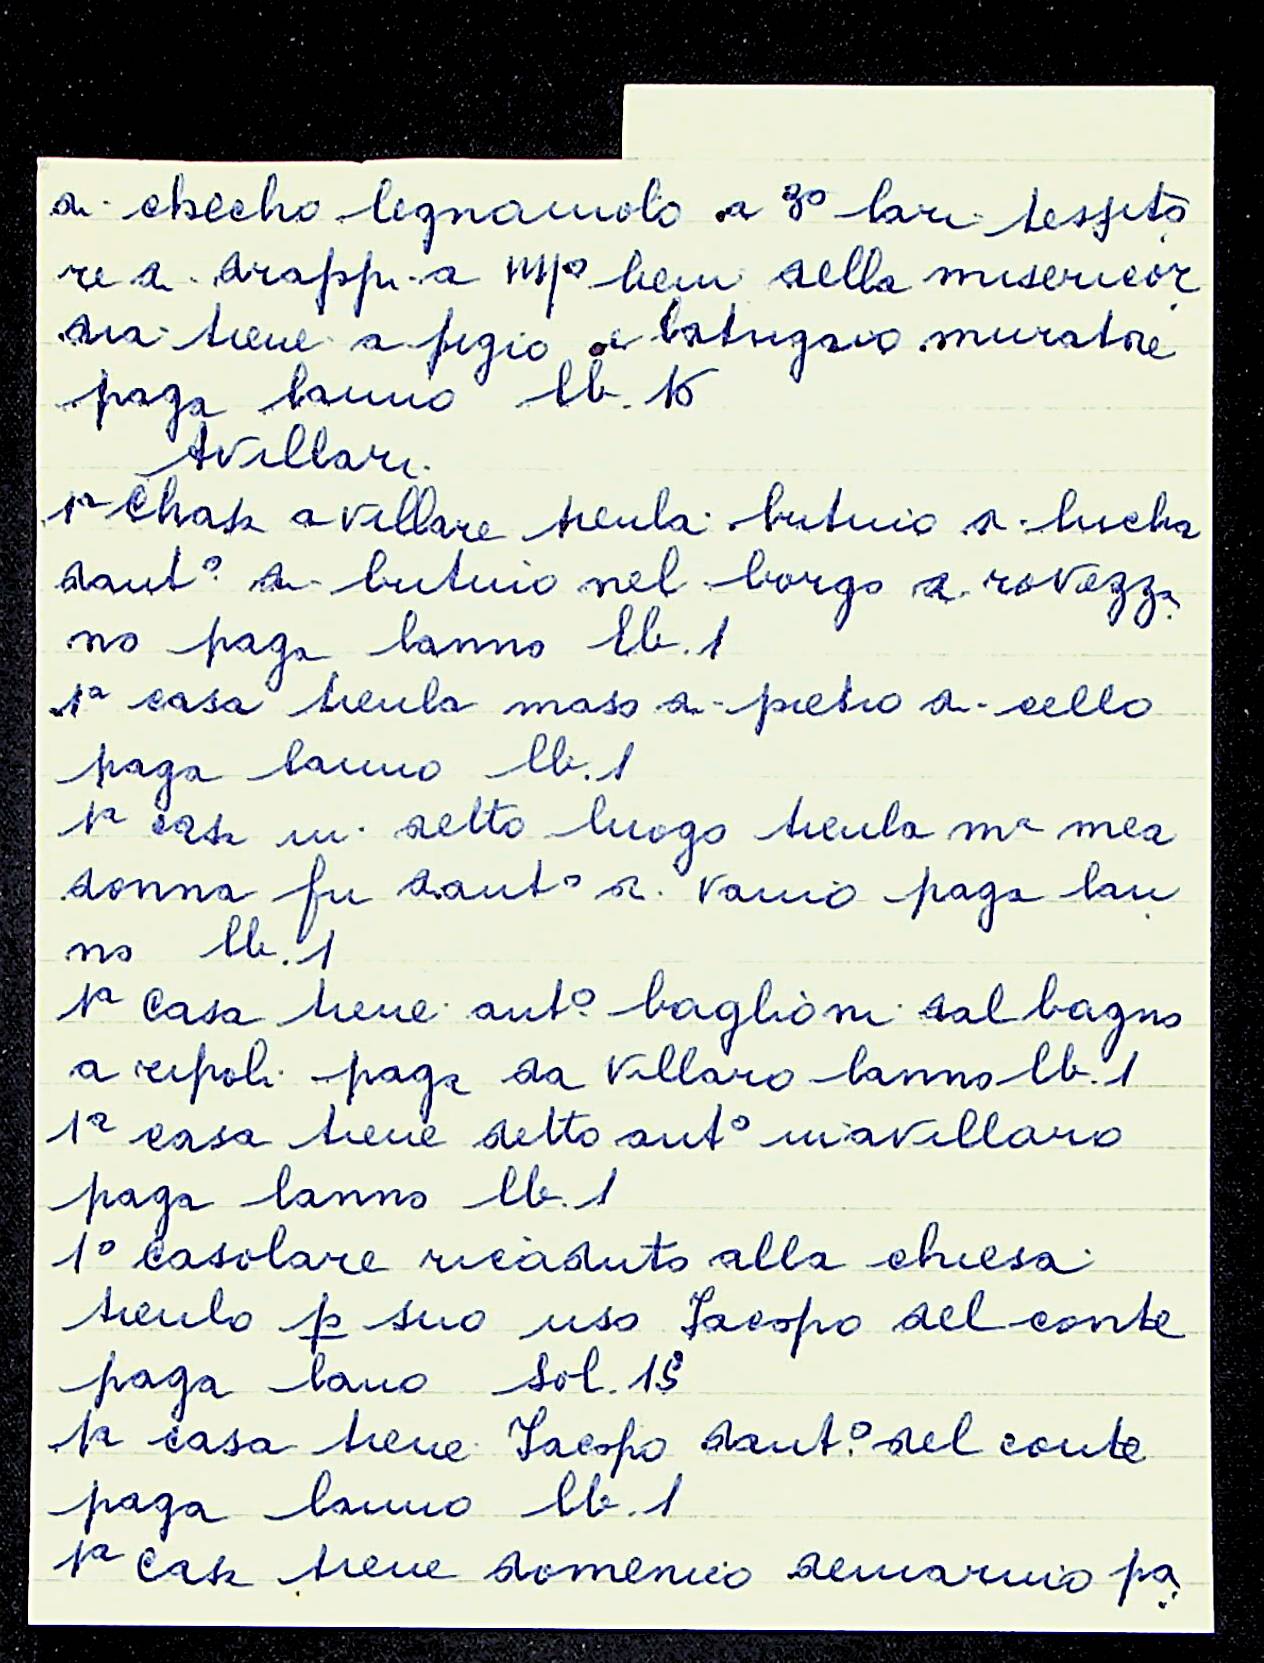 di checho legnaiuolo a 3º lari tessito
re di drappi a iiijº beni della misericor
dia tiene a pigio muratore
paga lanno lb. 15
Avillari.
1ª Chasa avillare tienla betuio di lucha
dantº di betuio nel borgo a rovezza
no paga lanno lb. 1
1ª casa tienla maso di pietro di cello
paga lanno lb. 1
1ª casa in detto luogo tienla mª mea
donna fu dantº di vanio paga lan
no lb. 1
1ª Casa tiene antº baglioni dal bagno
a ripoli paga da Villaro lanno lb. 1
1ª casa tiene detto antº inavillaro
paga lanno lb. 1
1º Casolare ricaduto alla chiesa
tienlo p suo uso Jacopo del conte
paga lano Sol. 15
1ª casa tiene Jacopo dantº del conte
paga lanno lb. 1
1ª Casa tiene domenico pa